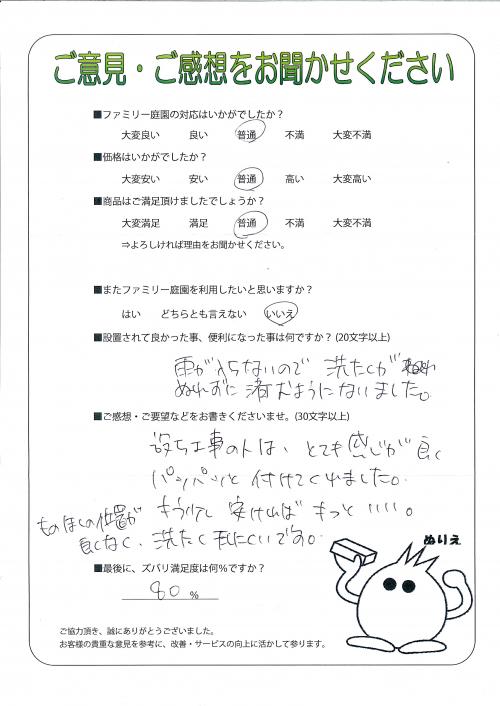 ご意見・ご感想をお聞かせください
■ファミリー庭園の対応はいかがでしたか？
大変良い 良い 普通 不満 大変不満
■価格はいかがでしたか？
大変安い 安い 普通 高い 大変高い
■商品はご満足頂けましたでしょうか？
大変満足 満足 普通 不満 大変不満
⇒よろしければ理由をお聞かせください。
■またファミリー庭園を利用したいと思いますか？
はい どちらとも言えない いいえ
■設置されて良かった事、便利になった事は何ですか？(20文字以上)
雨が入らないので 洗たくが
ぬれずに済むようになりました。
■ご感想・ご要望などをお書きくださいませ。(30文字以上)
設ち工事の人は、とても感じが良く
パンパンと付けてくれました。
もう少し 安ければ もっと いいい。
ものほしの位置が
良くなく、洗たくしにくいです。
■最後に、ズバリ満足度は何%ですか？
80 %
ぬりえ
ご協力頂き、誠にありがとうございました。
お客様の貴重な意見を参考に、改善・サービスの向上に活かして参ります。